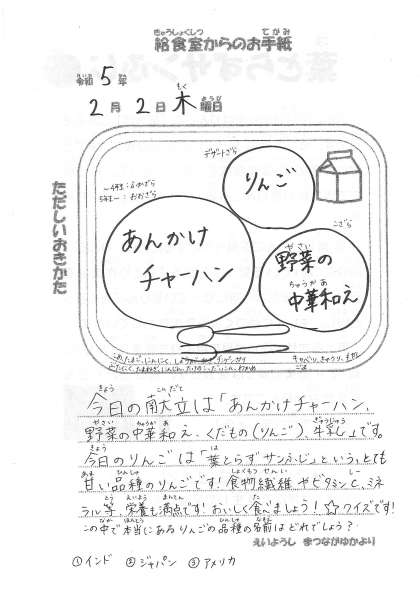 給食室からのお手紙
令和5年
2月2日木曜日
ただしいおきかた
デザートざら
りんご
5年生〜：おおざら
こざら
あんかけ
チャーハン
野菜の
中華和え
今日の献立は「あんかけチャーハン、
野菜の中華和え、くだもの(りんご)、牛乳」です。
今日のりんごは「葉とらずサンふじ」という、とても
甘い品種のりんごです！食物繊維やビタミンC、ミネ
ラル等、栄養も満点です！おいしく食べましょう！☆クイズです！
この中で本当にあるりんごの品種の名前はどれでしょう？
えいようし まつながゆかより
①インド ②ジャパン ③アメリカ